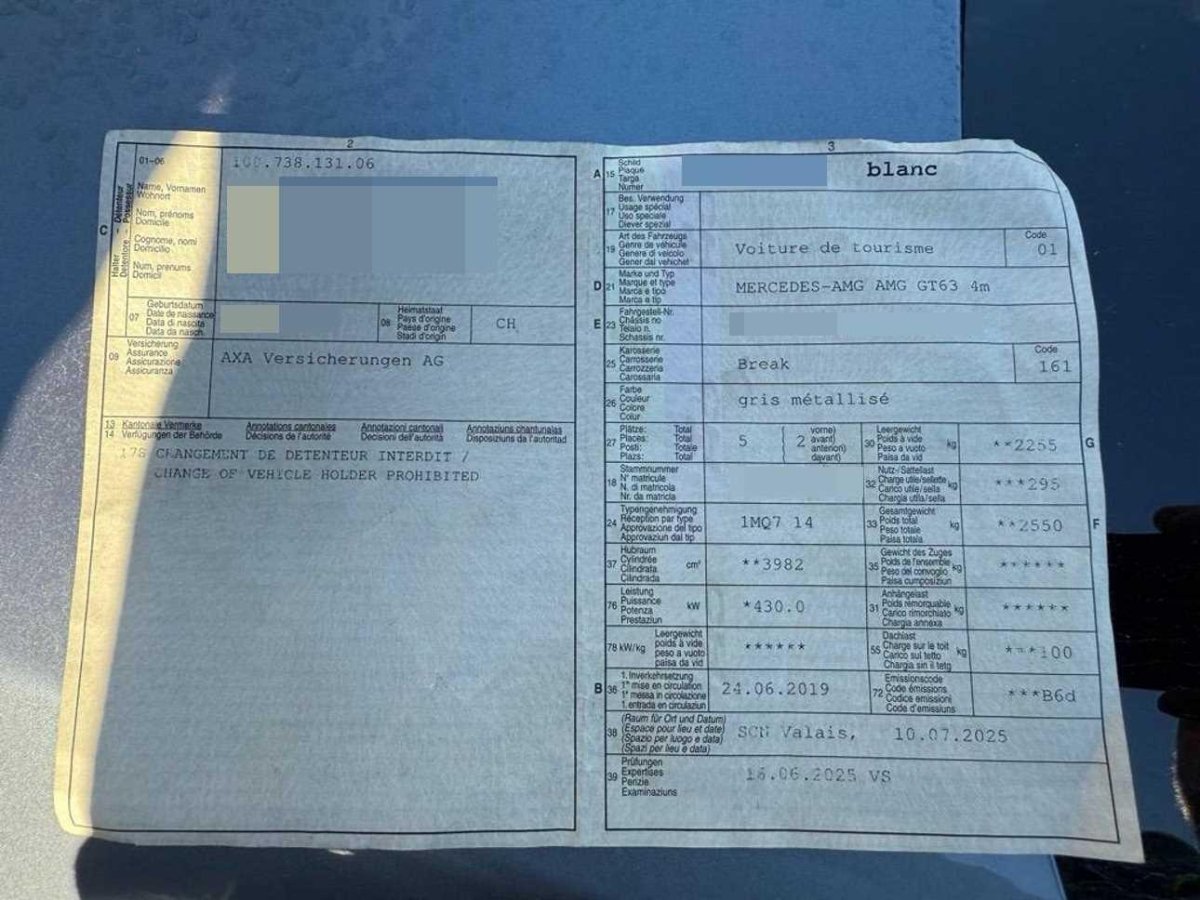 2
01-06
100.738.131.06
C
Halter - Détenteur
Detentore - Possessur
Name, Vornamen
Wohnort
Nom, prénoms
Domicile
Cognome, nomi
Domicilio
Num, prenums
Domicil
07
Geburtsdatum
Date de naissance
Data di nascita
Data da nasch.
08
Heimatstaat
Pays d'origine
Paese d'origine
Stadi d'origin
CH
09
Versicherung
Assurance
Assicurazione
Assicuranza
AXA Versicherungen AG
13 Kantonale Vermerke Annotations cantonales Annotazioni cantonali Annotaziuns chantunalas
14 Verfügungen der Behörde Décisions de l'autorité Decisioni dell'autorità Disposiziuns da l'autoritad
178 CHANGEMENT DE DETENTEUR INTERDIT /
CHANGE OF VEHICLE HOLDER PROHIBITED
3
A 15
Schild
Plaque
Targa
Numer
blanc
17
Bes. Verwendung
Usage spécial
Uso speciale
Diever spezial
19
Art des Fahrzeugs
Genre de véhicule
Genere di veicolo
Gener dal vehichel
Voiture de tourisme
Code
01
D 21
Marke und Typ
Marque et type
Marca e tipo
Marca e tip
MERCEDES-AMG AMG GT63 4m
E 23
Fahrgestell-Nr.
Châssis no
Telaio n.
Schassis nr.
25
Karosserie
Carrosserie
Carrozzeria
Carossaria
Break
Code
161
26
Farbe
Couleur
Colore
Colur
gris métallisé
27
Plätze: Total
Places: Total
Posti: Totale
Plazs: Total
5
2
vorne)
avant)
anteriori)
davant)
30
Leergewicht
Poids à vide
Peso a vuoto
Paisa da vid
kg
**2255
G
18
Stammnummer
N° matricule
N. di matricola
Nr. da matricla
32
Nutz-/Sattellast
Charge utile/sellette
Carico utile/sella
Chargia utila/sella
kg
***295
24
Typengenehmigung
Réception par type
Approvazione del tipo
Approvaziun dal tip
1MQ7 14
33
Gesamtgewicht
Poids total
Peso totale
Paisa totala
kg
**2550
F
37
Hubraum
Cylindrée
Cilindrata
Cilindrada
cm³
**3982
35
Gewicht des Zuges
Poids de l'ensemble
Peso del convoglio
Paisa cumposiziun
kg
******
76
Leistung
Puissance
Potenza
Prestaziun
kW
*430.0
31
Anhängelast
Poids remorquable
Carico rimorchiato
Chargia annexa
kg
******
78 kW/kg
Leergewicht
poids à vide
peso a vuoto
paisa da vid
******
55
Dachlast
Charge sur le toit
Carico sul tetto
Chargia sin il tetg
kg
***100
B 36
1. Inverkehrsetzung
1re mise en circulation
1a messa in circolazione
1. entrada en circulaziun
24.06.2019
72
Emissionscode
Code émissions
Codice emissioni
Code d'emissiuns
***B6d
38
(Raum für Ort und Datum)
(Espace pour lieu et date)
(Spazio per luogo e data)
(Spazi per lieu e data)
SCN Valais, 10.07.2025
39
Prüfungen
Expertises
Perizie
Examinaziuns
16.06.2025 VS